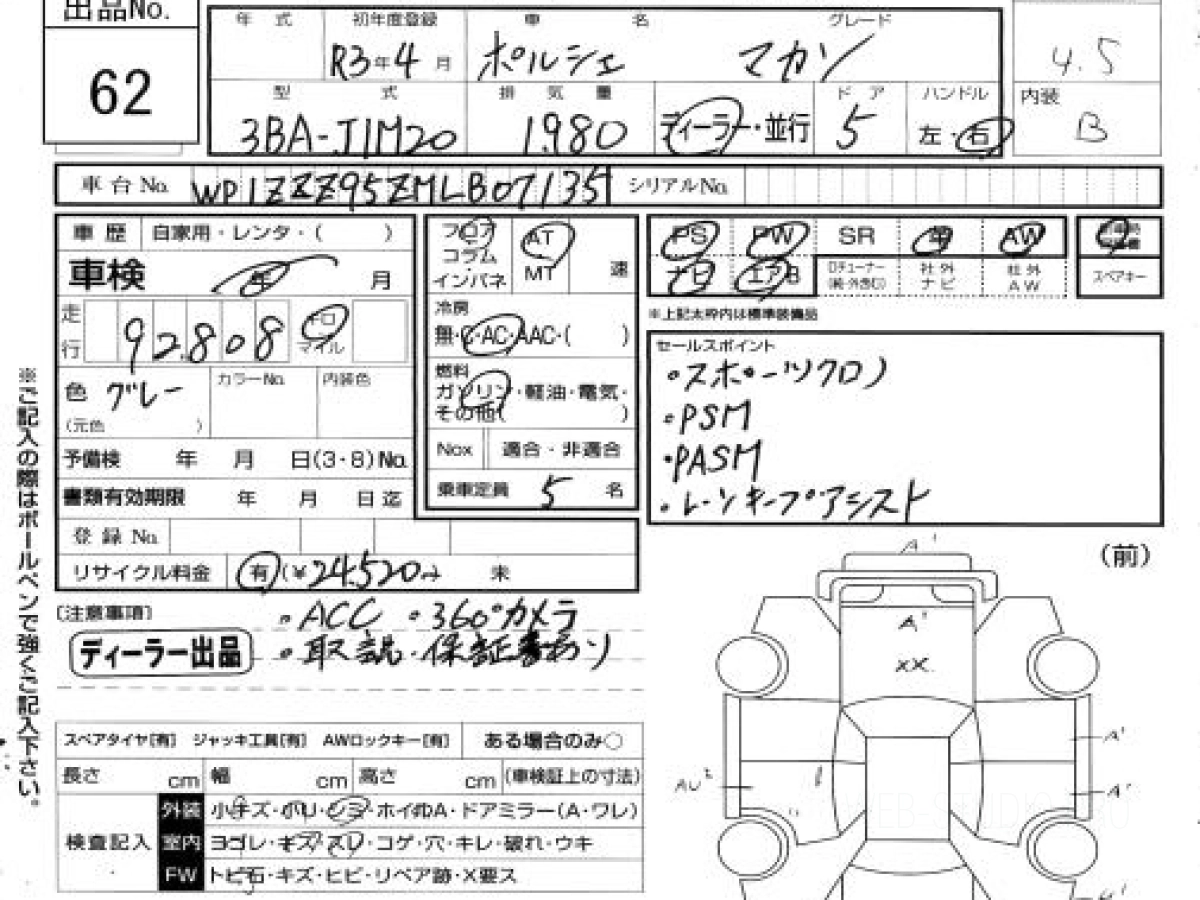 出品No.
62
年 式 初年度登録 車 名 グレード
R3年4月 ポルシェ マカン
4.5
型 式 排 気 量 ディーラー・並行 ド ア ハンドル 内装
3BA-J1M20 1980 5 左・右 B
車台No. WP1ZZZ95ZMLB07135 シリアルNo.
車歴 自家用・レンタ・( )
車検 年 月
走行 92808 キロ マイル
色 グレー カラーNo. 内装色
(元色 )
予備検 年 月 日(3・8)No.
書類有効期限 年 月 日迄
登録No.
リサイクル料金 有 (¥24,520 未
フロア コラム インパネ AT MT 速
冷房
無・C・AC・AAC・( )
燃料
ガソリン・軽油・電気・
その他( )
Nox 適合・非適合
乗車定員 5 名
PS PW SR 革 AW
ナビ エアB Dチューナー 社外ナビ 社外AW スペアキー
※上記太枠内は標準装備品
セールスポイント
・スポーツクロノ
・PSM
・PASM
・レーンキープアシスト
(注意事項) ・ACC ・360°カメラ
ディーラー出品 ・取説・保証書あり
スペアタイヤ[有] ジャッキ工具[有] AWロックキー[有] ある場合のみ○
長さ cm 幅 cm 高さ cm (車検証上の寸法)
検査記入
外装 小キズ・ホリ・シミ・ホイールA・ドアミラー(A・ワレ)
室内 ヨゴレ・キズ・スレ・コゲ・穴・キレ・破れ・ウキ
FW トビ石・キズ・ヒビ・リペア跡・X要ス
※ご記入の際はボールペンで強くご記入下さい。
(前)
A'
A'
XX
A'
A'
AU²